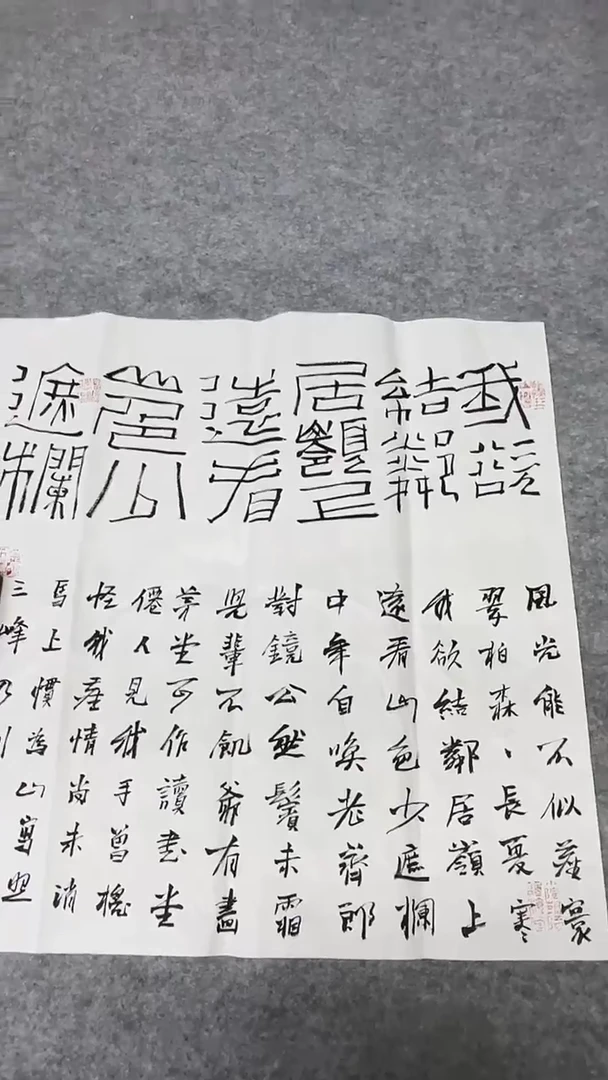 我欲
結鄰
居嶺上
遠看
山色少
遮欄
風光能不似塵寰
翠柏森、長夏寒
我欲結鄰居嶺上
遠看山色少遮欄
中年自喚老齊郎
對鏡公然鬢未霜
兒輩不飢爺有畫
茅堂可作讀書堂
僊人見我手曾搖
怪我塵情尚未消
馬上慣為山寫照
三峰